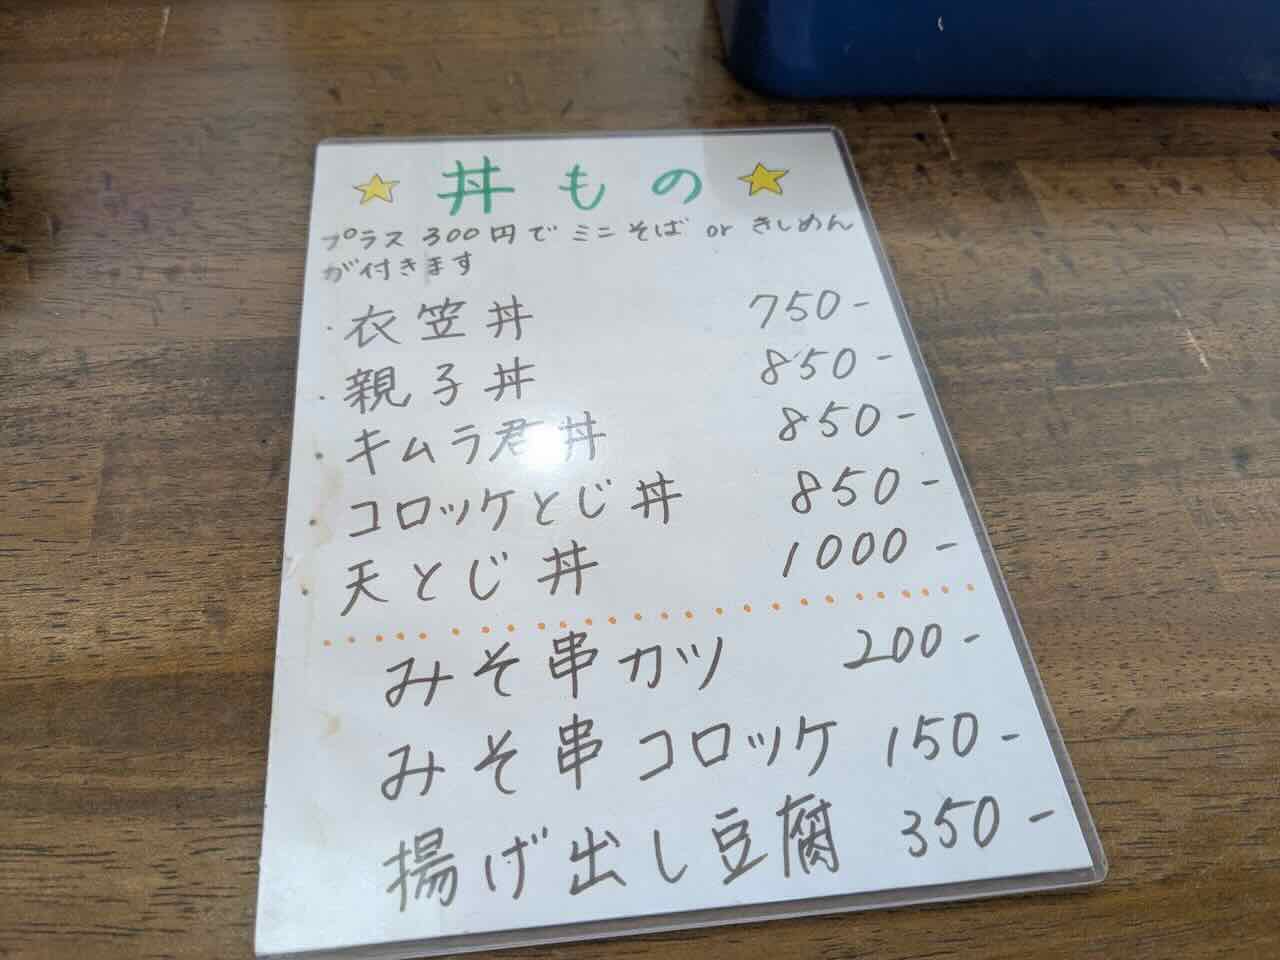 丼もの
プラス300円でミニそば or きしめん
が付きます
・衣笠丼 750-
・親子丼 850-
・キムラ君丼 850-
・コロッケとじ丼 850-
・天とじ丼 1000-
みそ串カツ 200-
みそ串コロッケ 150-
揚げ出し豆腐 350-